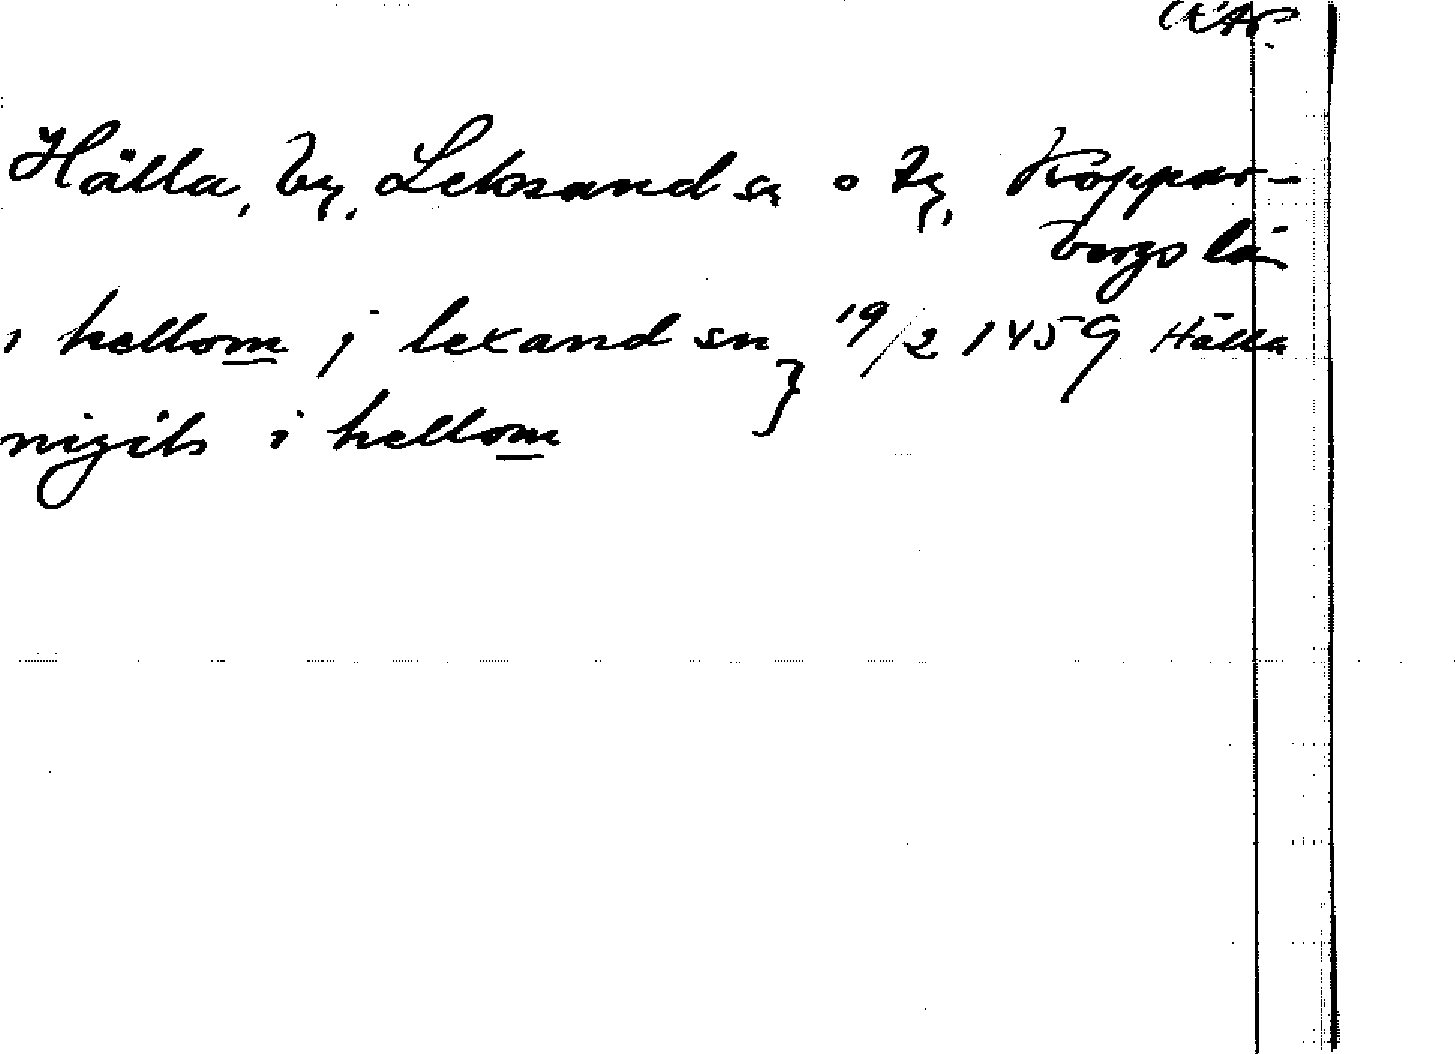 Hälla, by, Leksand sn o tg, Koppar-
bergs län
i hellom j lexand sn } 19/2 1459 Hälla
nigils i hellom